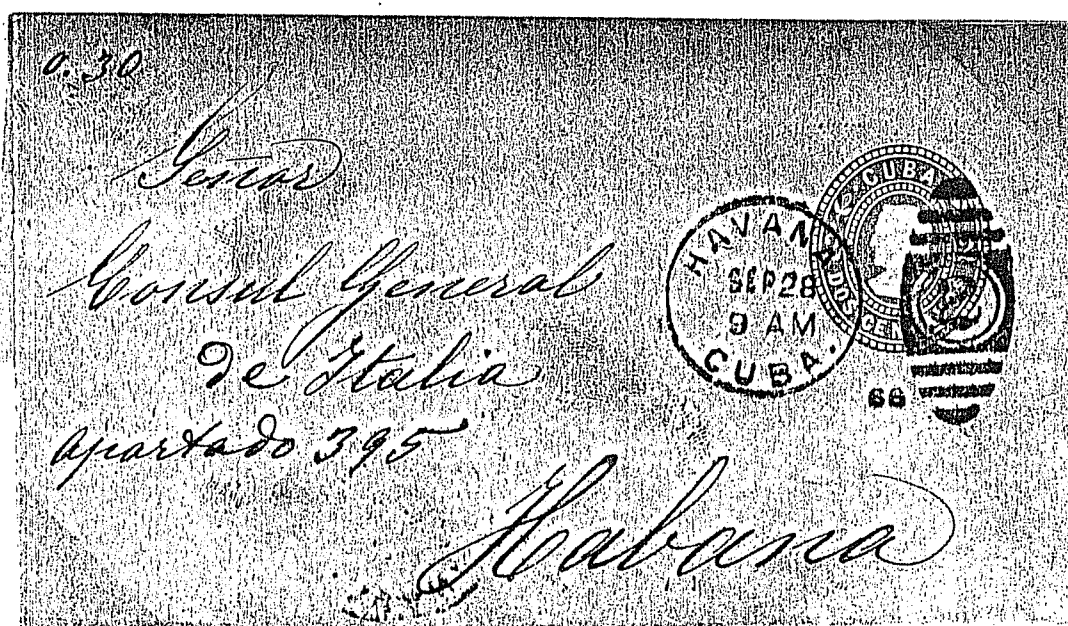 0.30
Señor
Consul General
de Italia
apartado 395
Habana
HAVANA
SEP 28
9 AM
CUBA.
CUBA
DOS CE
66